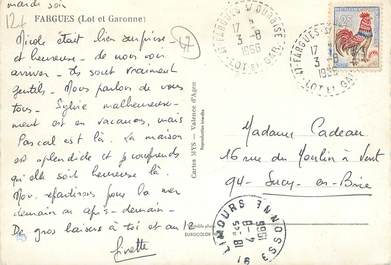 mardi soir
FARGUES (Lot et Garonne)
Nicole était bien surprise
et heureuse de nous voir
arriver. Ils sont vraiment
gentils. Nous parlons de vous
tous. Sylvie malheureuse-
ment est en vacances, mais
Pascal est là. La maison
est splendide et je comprends
qu'elle soit heureuse là.
Nous repartirons pour la mer
demain ou après-demain.
De gros baisers à toi et au 12
Linette
Cartes MYS - Valence d'Agen
Reproduction interdite
EUROCOLOR
47 FARGUES-S/-OURBISE
17 H
3-8
1966
LOT ET GAR.
47 FARGUES-S
17 H
3-8
1966
LOT ET GAR.
Madame Cadeau
16 rue du Moulin à Vent
94 - Sucy-en-Brie
LIMOURS ESSONNE
18H45
4-8
1966
91